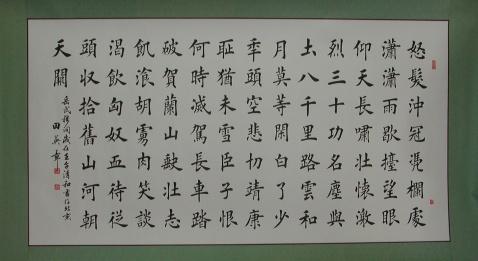 怒髮沖冠凴欄處
瀟瀟雨歇擡望眼
仰天長嘯壯懷激
烈三十功名塵與
土八千里路雲和
月莫等閑白了少
秊頭空悲切靖康
耻猶未雪臣子恨
何時滅駕長車踏
破賀蘭山缺壯志
飢湌胡虜肉笑談
渴飲匈奴血待從
頭収拾舊山河朝
天闕
田英章